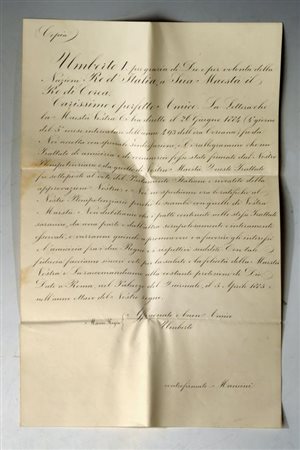 Copia
Umberto I per grazia di Dio e per volontà della
Nazione Re d'Italia, a Sua Maestà il
Re di Corea.
Carissimo e perfetto Amico. La Lettera che
la Maestà Vostra Ci ha diretto il 26 Giugno 1884 (4 giorno
del 5° mese intercalare dell'anno 493 dell'era Coreana) fu da
Noi accolta con sincera soddisfazione. Ci rallegriamo che un
Trattato di amicizia e di commercio fosse stato firmato dal Nostro
Plenipotenziario e da quello di Vostra Maestà. Questo Trattato
fu sottoposto al voto del Parlamento Italiano e rivestito della
approvazione Nostra e Noi
Nostro Plenipotenziario perchè lo scambi con quello di Vostra
Maestà. Noi dubitiamo che i patti contenuti nello stesso Trattato
saranno da una parte e dall'altra scrupolosamente e interamente
osservati, e varranno quindi a promuovere e a favorire gl'interessi
e l'amicizia fra i due Regni e i rispettivi sudditi. Con tale
fiducia facciamo sinceri voti per la salute e la felicità della Maestà
Vostra e La raccomandiamo alla costante protezione di Dio.
Dato a Roma, nel Palazzo del Quirinale, il 5 Aprile 1885
e nell'anno ottavo del Nostro regno.
Buon Amico
Umberto
controfirmato Mancini